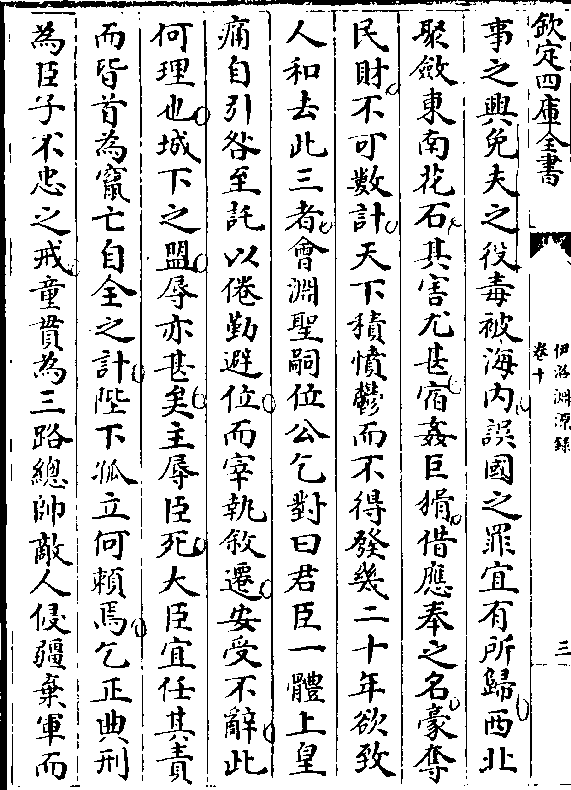 欽定四庫全書
伊洛淵源錄
卷十
三
事之興免夫之役毒被海内誤國之罪宜有所歸西北
聚斂東南花石其害尤甚宿姦巨猾借應奉之名豪奪
民財不可數計天下積憤鬱而不得發幾二十年欲致
人和去此三者會淵聖嗣位公乞對曰君臣一體上皇
痛自引咎至託以倦勤避位而宰執敘遷安受不辭此
何理也城下之盟辱亦甚矣主辱臣死大臣宜任其責
而皆首為竄亡自全之計陛下孤立何賴焉乞正典刑
為臣子不忠之戒童貫為三路總帥敵人侵疆棄軍而